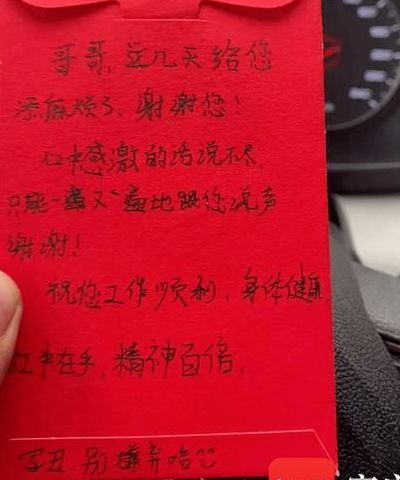 哥哥,这几天给您
添麻烦了,谢谢您!
口中感激的话说不尽,
只能一遍又一遍地跟您说声
谢谢!
祝您工作顺利,身体健康
红中在手,精神百倍.
字丑 别嫌弃哈